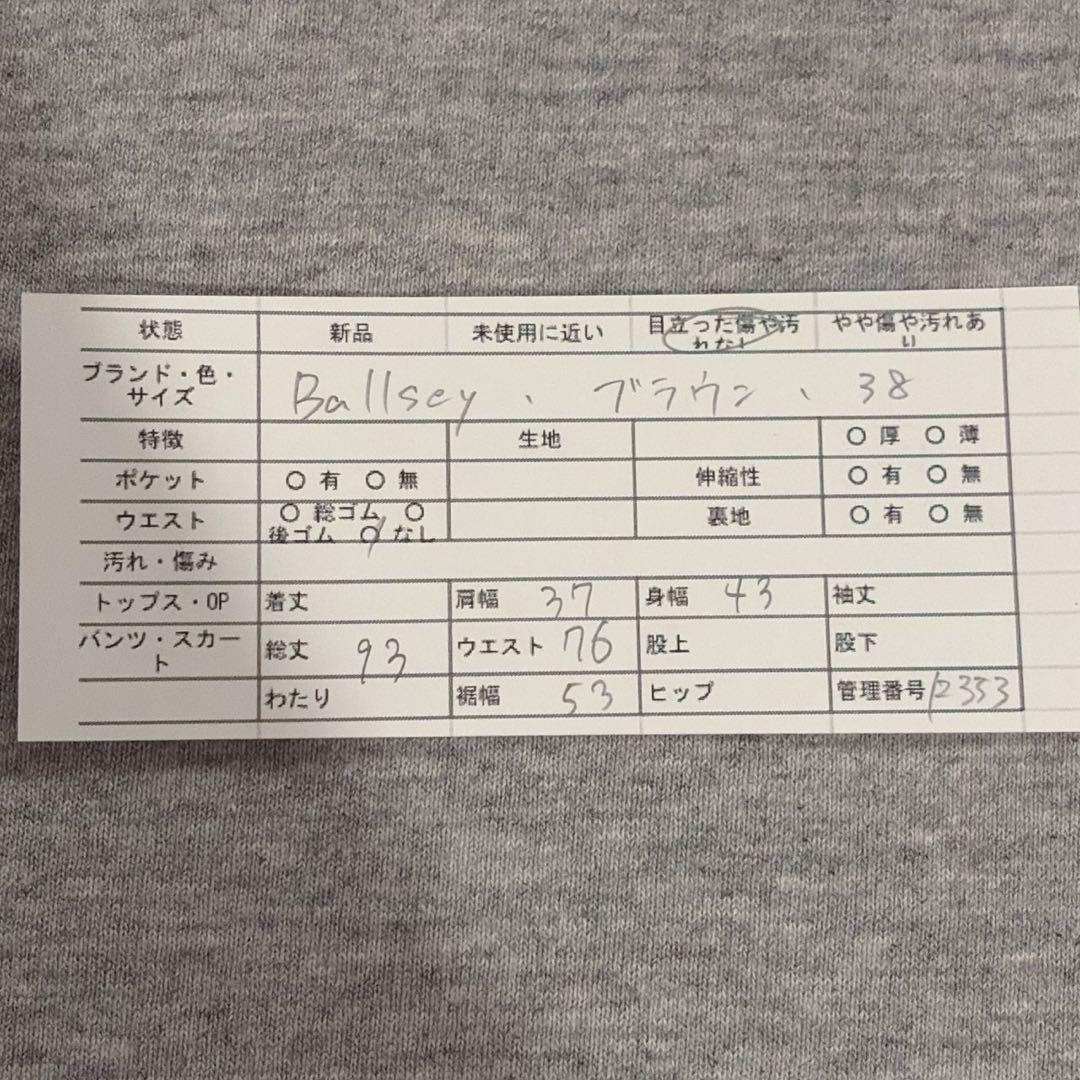 状態 新品 未使用に近い 目立った傷や汚れなし やや傷や汚れあい
ブランド・色・サイズ Ballsey、ブラウン、38
特徴 生地 ○ 厚 ○ 薄
ポケット ○ 有 ○ 無 伸縮性 ○ 有 ○ 無
ウエスト ○ 総ゴム ○ 後ゴム ○ なし 裏地 ○ 有 ○ 無
汚れ・傷み
トップス・OP 着丈 肩幅 37 身幅 43 袖丈
パンツ・スカート 総丈 93 ウエスト 76 股上 股下
わたり 裾幅 53 ヒップ 管理番号 12353